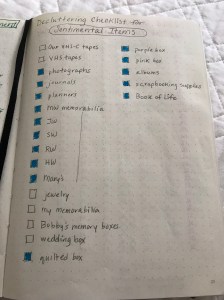 Decluttering Checklist for
Sentimental Items
Our VHS-C tapes
VHS tapes
photographs
journals
planners
MW memorabilia
JW
SW
RW
HW
jewelry
my memorabilia
Bobby's memory boxes
wedding box
quilted box
purple box
pink box
albums
scrapbooking supplies
Book of Life